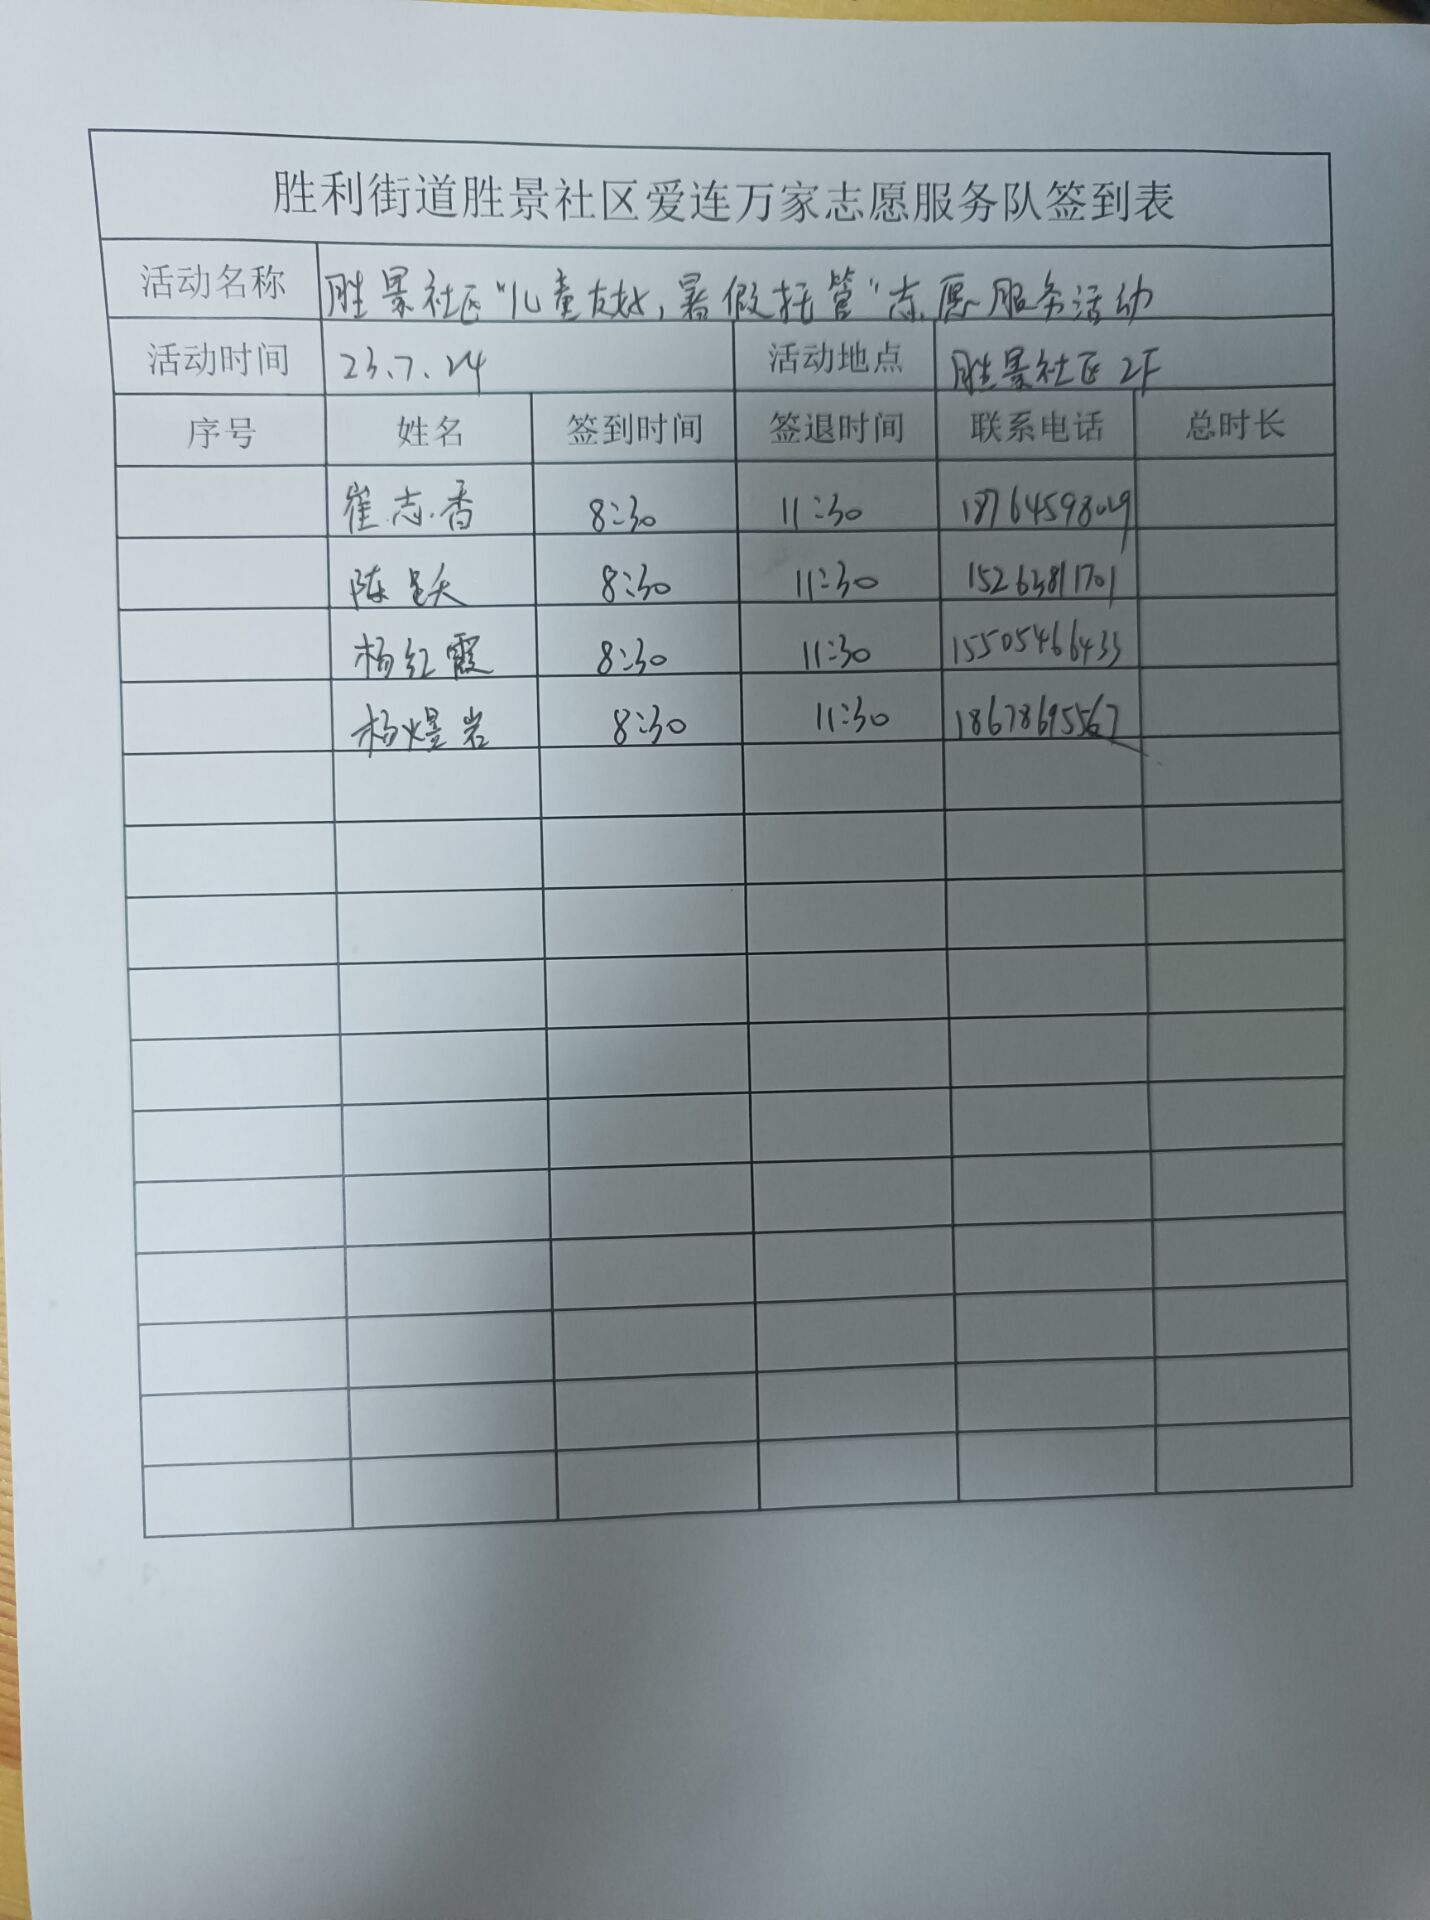 胜利街道胜景社区爱连万家志愿服务队签到表
活动名称 胜景社区“儿童友好,暑假托管”志愿服务活动
活动时间 23.7.24 活动地点 胜景社区2F
序号 姓名 签到时间 签退时间 联系电话 总时长
崔志香 8:30 11:30 18764598029
陈 8:30 11:30 15263811701
杨红霞 8:30 11:30 15505466433
杨煜岩 8:30 11:30 18678695567